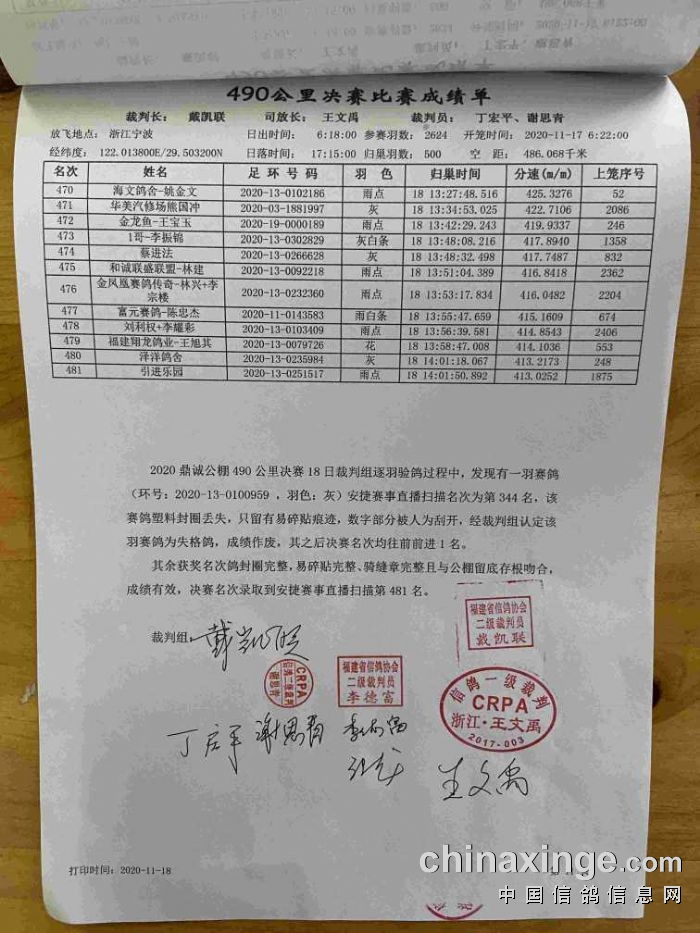 490公里决赛比赛成绩单
裁判长： 戴凯联 司放长： 王文禹 裁判员： 丁宏平、谢思青
放飞地点： 浙江宁波 日出时间： 6:18:00 参赛羽数： 2624 开笼时间： 2020-11-17 6:22:00
经纬度： 122.013800E/29.503200N 日落时间： 17:15:00 归巢羽数： 500 空 距： 486.068千米
名次 姓名 足 环 号 码 羽 色 归巢时间 分速(m/m) 上笼序号
470 海文鸽舍-姚金文 2020-13-0102186 雨点 18 13:27:48.516 425.3276 52
471 华美汽修场熊国冲 2020-03-1881997 灰 18 13:34:53.025 422.7106 2086
472 金龙鱼-王宝玉 2020-19-0000189 雨点 18 13:42:29.243 419.9337 246
473 1哥-李振锦 2020-13-0302829 灰白条 18 13:48:08.216 417.8940 1358
474 蔡进法 2020-13-0266628 灰 18 13:48:32.498 417.7487 832
475 和诚联盛联盟-林建 2020-13-0092218 雨点 18 13:51:04.389 416.8418 2362
476 金凤凰赛鸽传奇-林兴+李宗楼 2020-13-0232360 雨点 18 13:53:17.834 416.0482 2204
477 富元赛鸽-陈忠杰 2020-11-0143583 雨白条 18 13:55:47.659 415.1609 674
478 刘利权+李耀彩 2020-13-0103409 雨点 18 13:56:39.581 414.8543 2406
479 福建翔龙鸽业-王旭其 2020-13-0079726 花 18 13:58:47.008 414.1036 553
480 洋洋鸽舍 2020-13-0235984 灰 18 14:01:18.067 413.2173 248
481 引进乐园 2020-13-0251517 雨点 18 14:01:50.892 413.0252 1875
2020 鼎诚公棚 490 公里决赛 18 日裁判组逐羽验鸽过程中，发现有一羽赛鸽
（环号：2020-13-0100959 ，羽色：灰）安捷赛事直播扫描名次为第 344 名，该
赛鸽塑料封圈丢失，只留有易碎贴痕迹，数字部分被人为刮开，经裁判组认定该
羽赛鸽为失格鸽，成绩作废，其之后决赛名次均往前前进 1 名。
其余获奖名次鸽封圈完整，易碎贴完整、骑缝章完整且与公棚留底存根吻合，
成绩有效，决赛名次录取到安捷赛事直播扫描第 481 名。
裁判组： 戴凯联
福建省信鸽协会
二级裁判员
戴凯联
CRPA
谢思青
福建省信鸽协会
二级裁判员
李德富
信鸽一级裁判
CRPA
浙江·王文禹
2017-003
谢思青
王文禹
打印时间：2020-11-18
chinaxinge.com
中国信鸽信息网